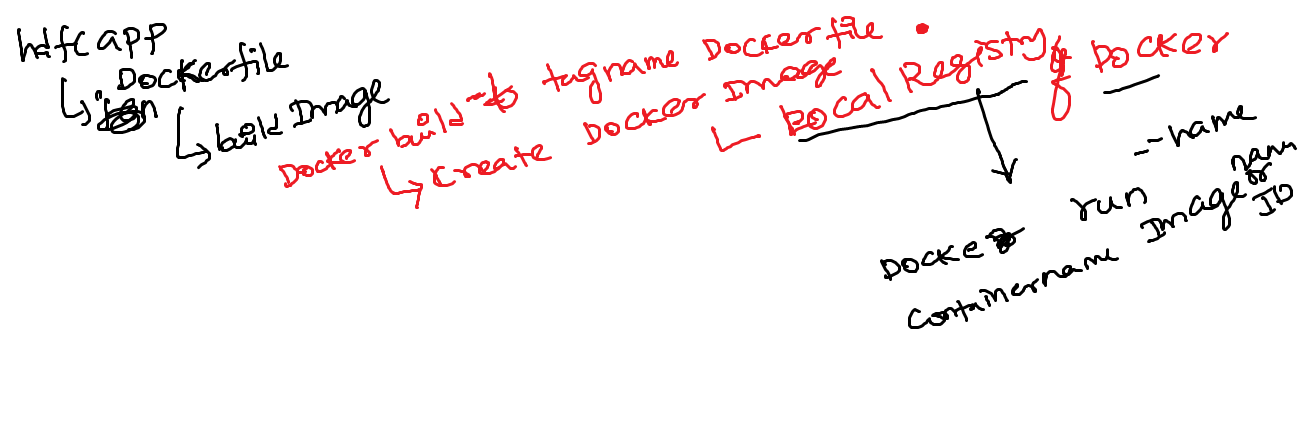 hdfc app
Dockerfile
build Image
Docker build -t tagname Dockerfile .
create Docker Image
Local Registry of Docker
Docker run --name
containername Image name or ID